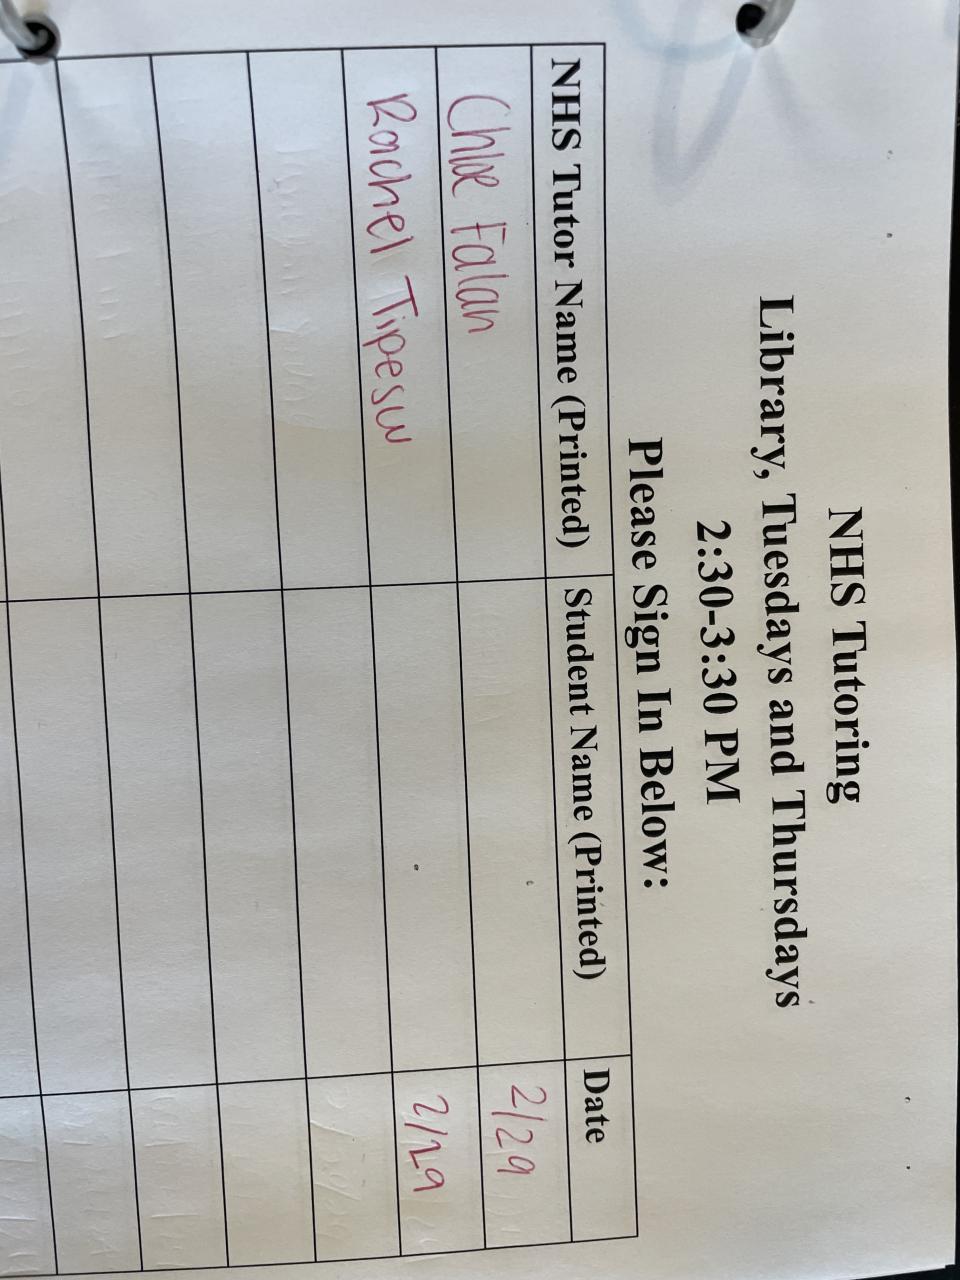 NHS Tutoring
Library, Tuesdays and Thursdays
2:30-3:30 PM
Please Sign In Below:
NHS Tutor Name (Printed) Student Name (Printed) Date
Chloe Falan 2/29
Rachel Tipesw 2/29